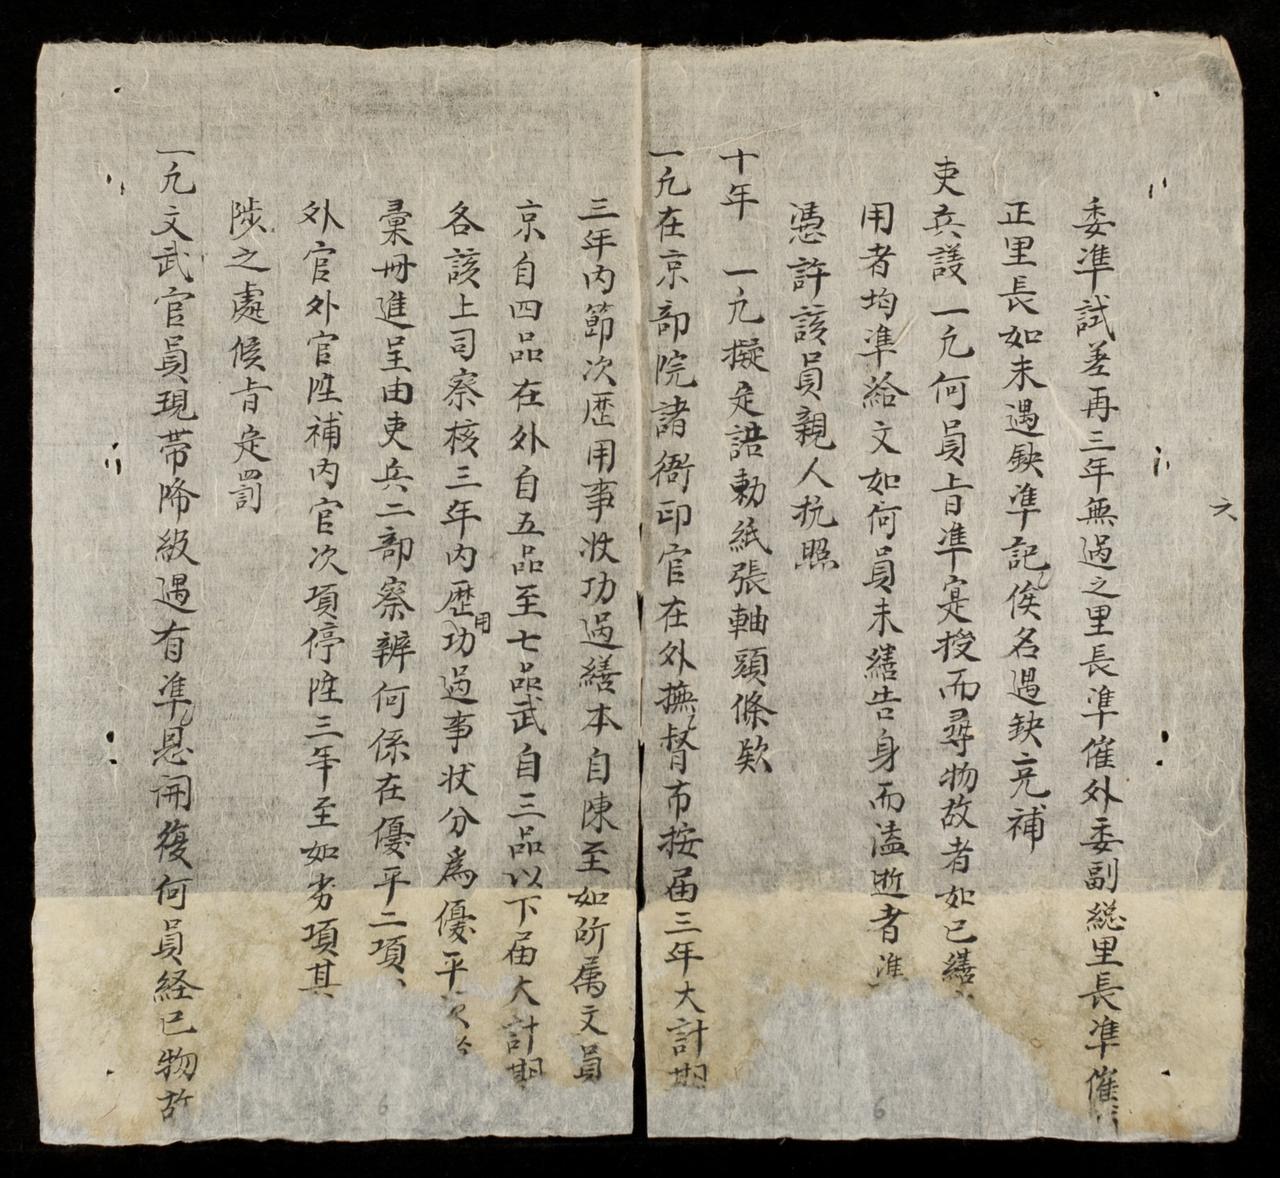 六
委準試差再三年無過之里長準催外委副総里長準催
正里長如未遇缺準記俟名遇缺充補
吏兵議一凡何員上旨準寔授而尋物故者如已繕
用者均準給文如何員未繕告身而溘逝者準
憑許該員親人抗照
十年 一凡擬定誥勅紙張軸頭條欵
一凡在京部院諸衙印官在外撫督市按届三年大計期
三年内節次歷用事狀功過繕本自陳至如所属文員
京自四品在外自五品至七品武自三品以下届大計期
各該上司察核三年内歷用功過事状分為優平
彙冊進呈由吏兵二部察辨何係在優平二項
外官外官陞補内官次項停陞三年至如劣項其
陟之處候旨定罰
一凡文武官員現帶降級遇有準恩開復何員経已物故
6
6